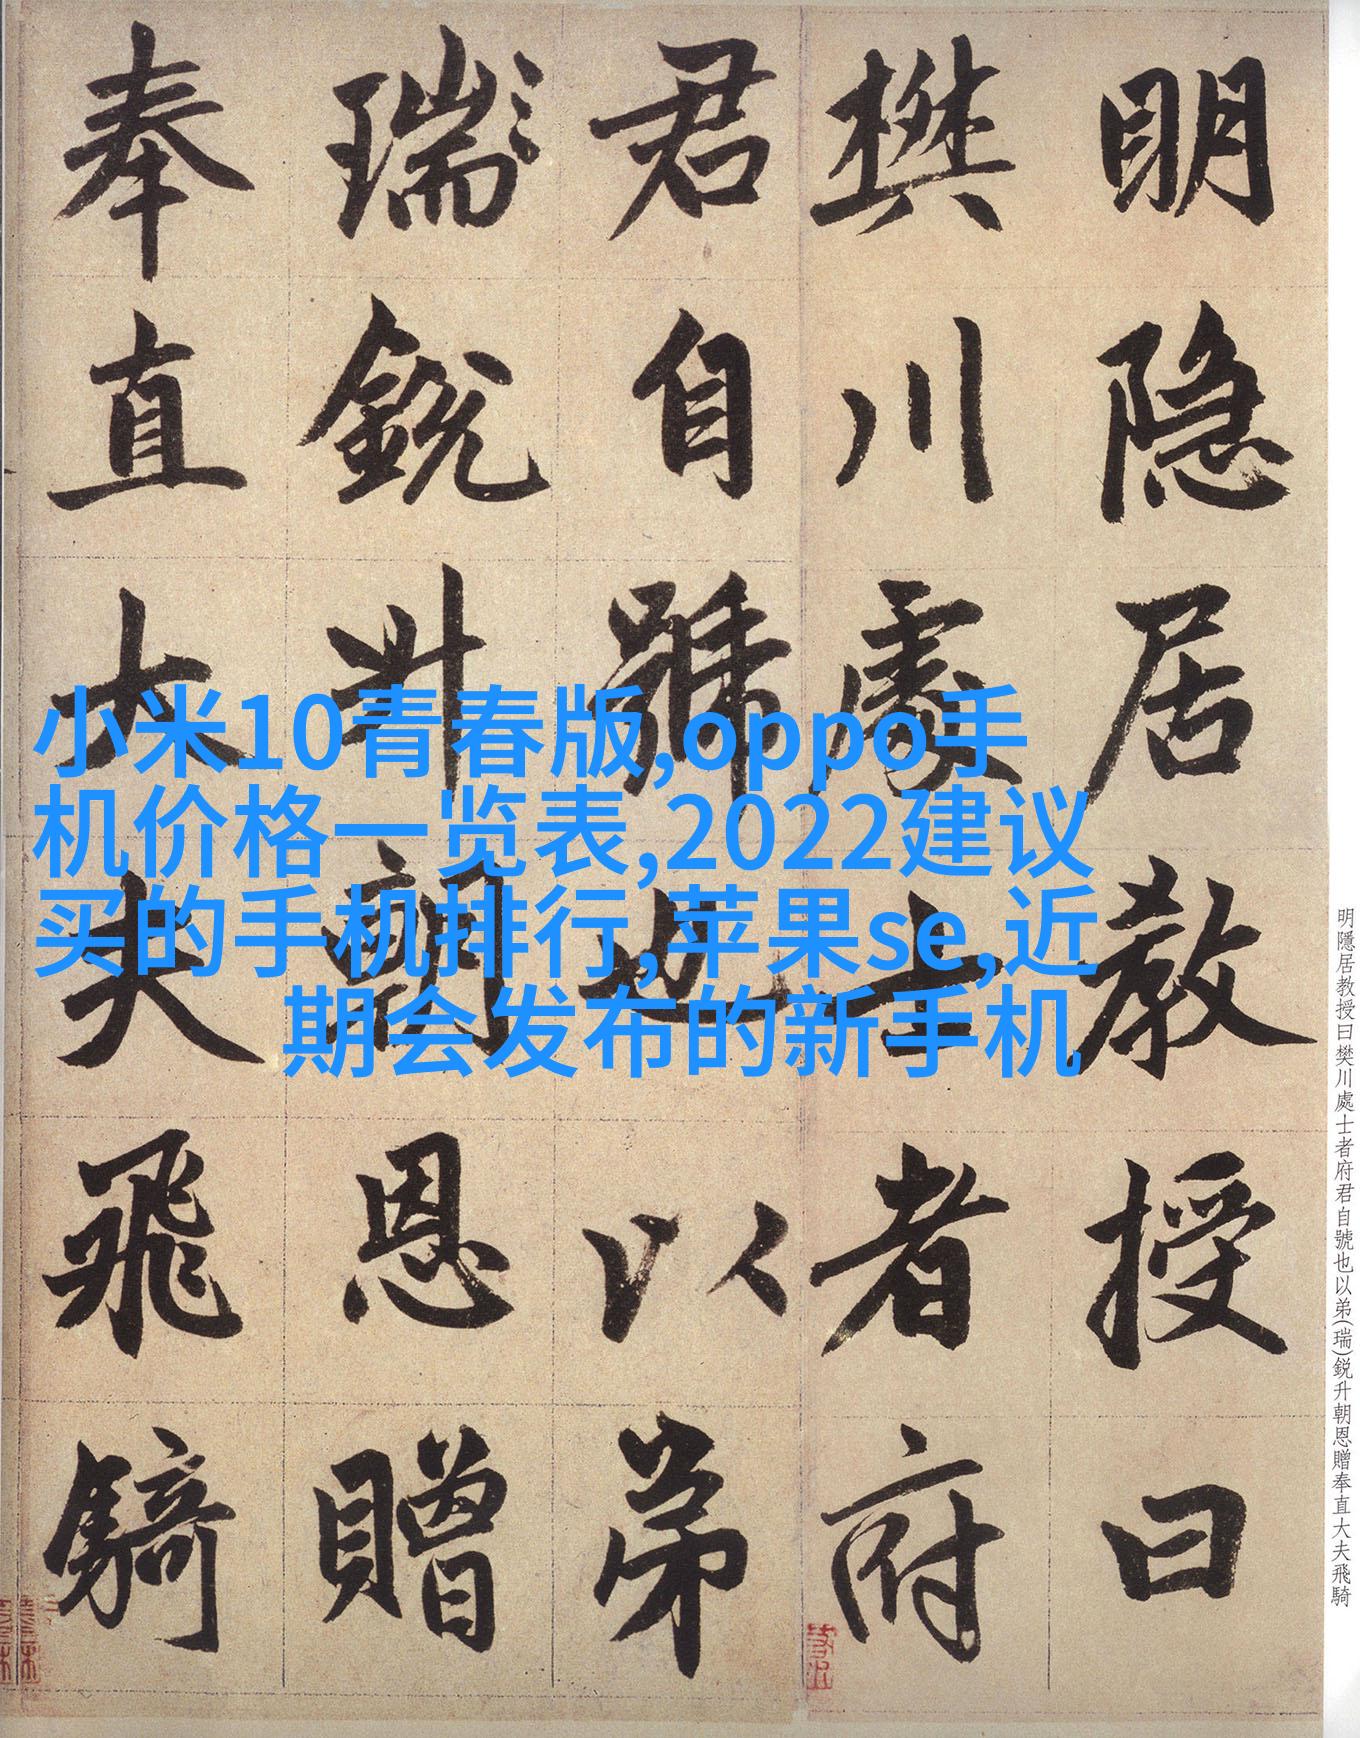 明隐居教授曰
樊川處士者府
君自號也以弟
瑞銳升朝恩贈
奉直大夫飛騎
小米10青春版,oppo手
机价格一览表,2022建议
买的手机排行,苹果se,近
期会发布的新手机
明隱居教授曰樊川處士者府君自號也以弟(瑞)鋭升朝恩贈奉直大夫飛騎